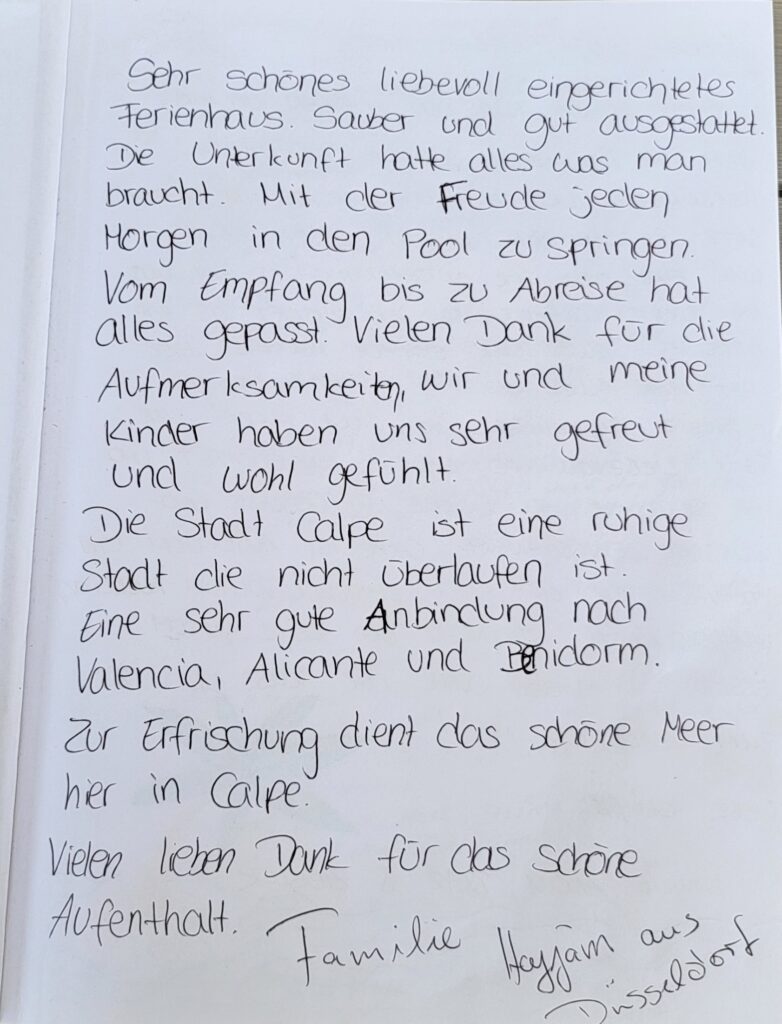 Sehr schönes liebevoll eingerichtetes
Ferienhaus. Sauber und gut ausgestattet.
Die Unterkunft hatte alles was man
braucht. Mit der Freude jeden
Morgen in den Pool zu springen.
Vom Empfang bis zu Abreise hat
alles gepasst. Vielen Dank für die
Aufmerksamkeiten, wir und meine
Kinder haben uns sehr gefreut
und wohl gefühlt.
Die Stadt Calpe ist eine ruhige
Stadt die nicht überlaufen ist.
Eine sehr gute Anbindung nach
Valencia, Alicante und Benidorm.
Zur Erfrischung dient das schöne Meer
hier in Calpe.
Vielen lieben Dank für das schöne
Aufenthalt.
Familie Hayjam aus
Düsseldorf